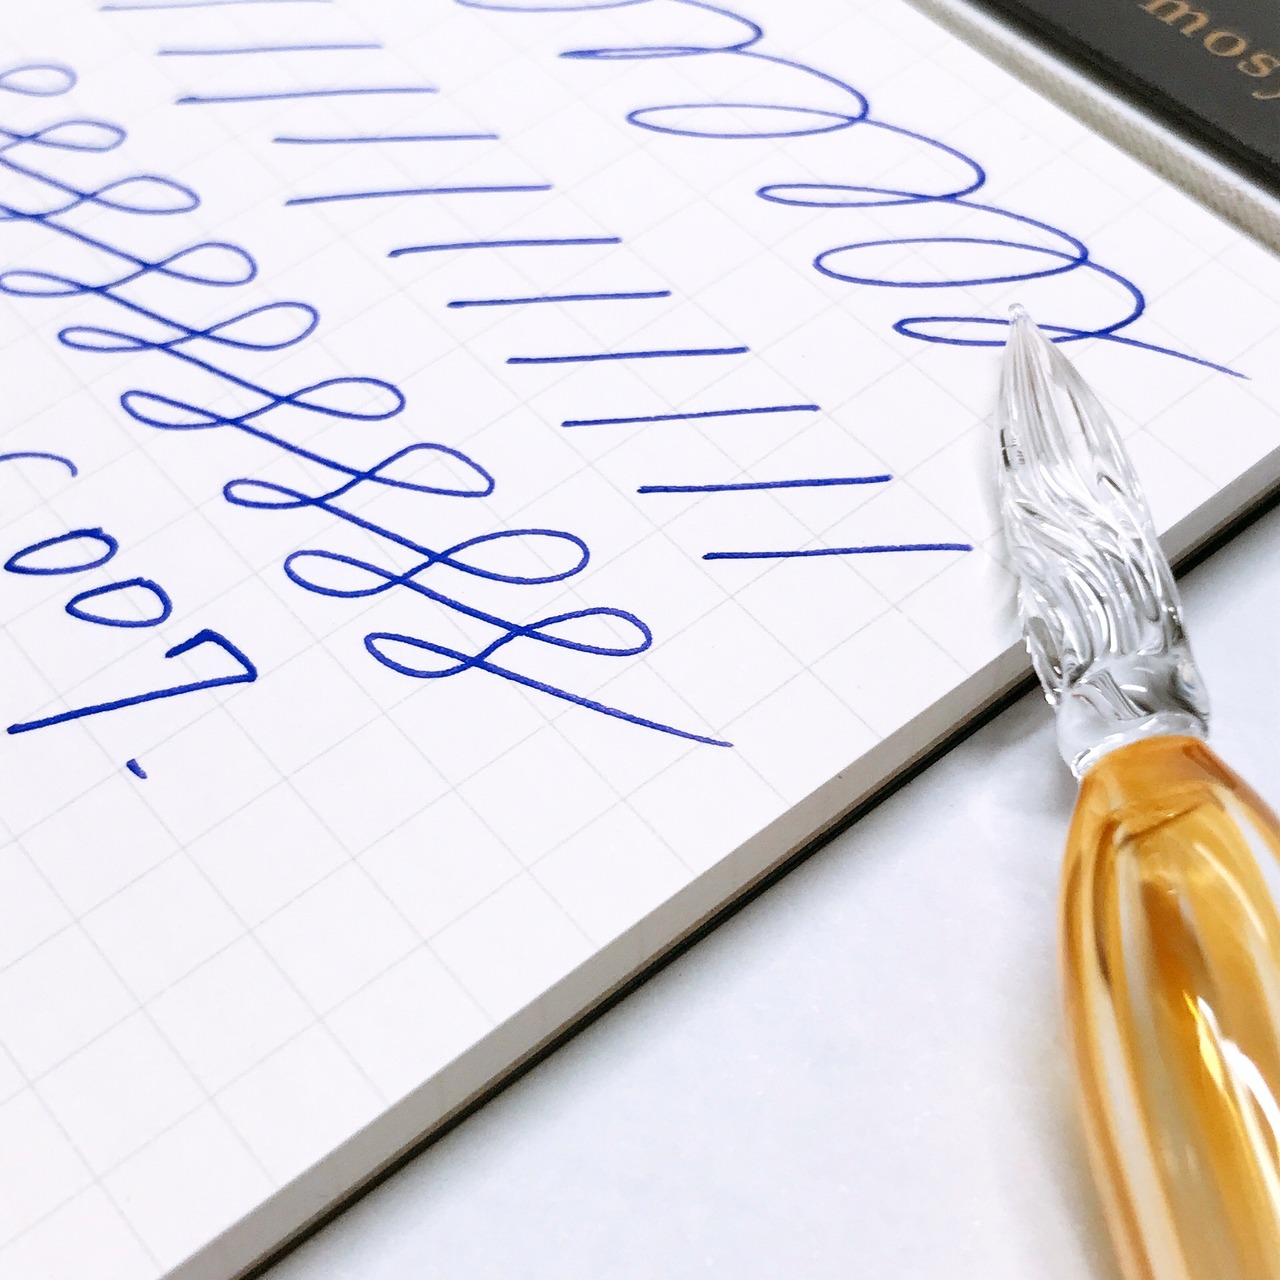 mosy
007.